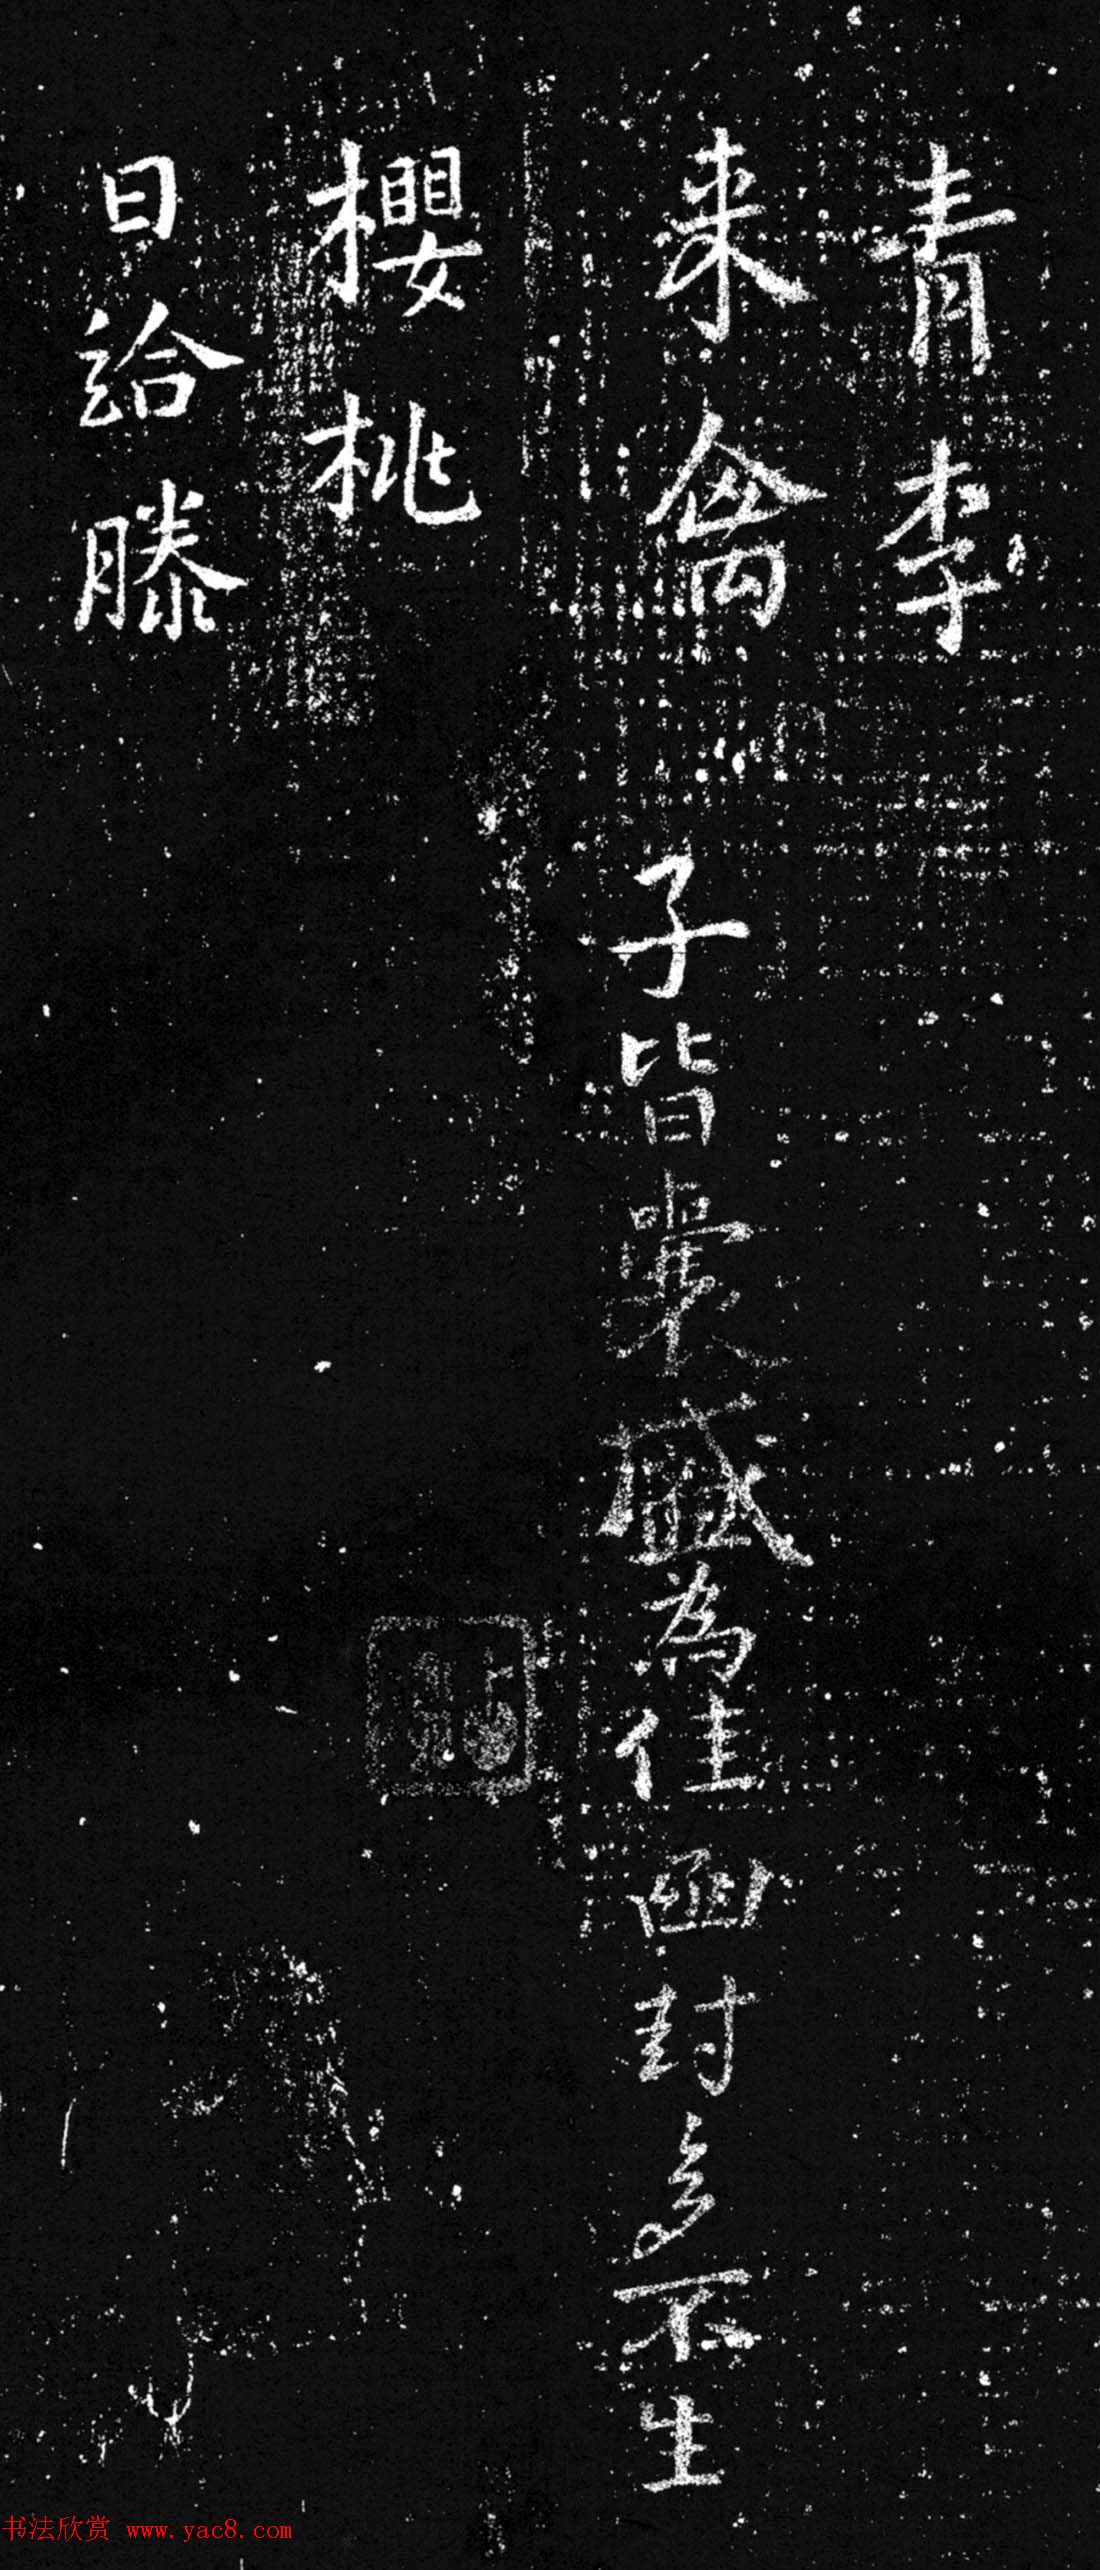 青李
来禽
子皆囊盛為佳函封多不生
櫻桃
日給滕
书法欣赏 www.yac8.com